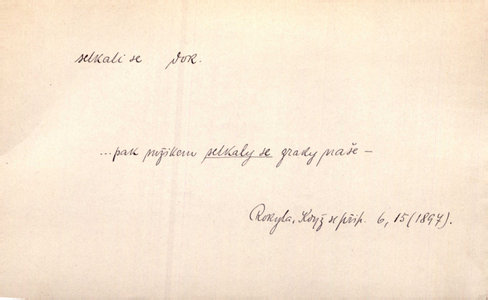 setkati se dok.
...pak mžikem setkaly se zraky naše –
Rokyta, Když se přip. 6, 15 (1897).